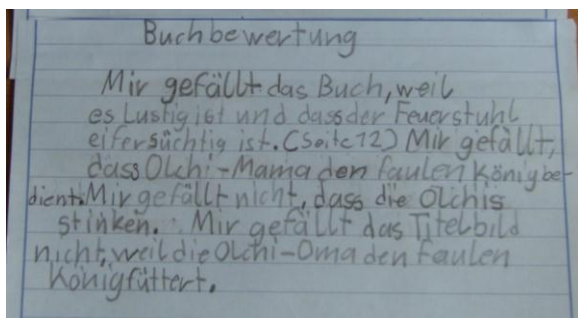 Buchbewertung
Mir gefällt das Buch, weil
es Lustig ist und dass der Feuerstuhl
eifersüchtig ist. (Seite 12) Mir gefällt,
dass Olchi-Mama den faulen König be-
dient. Mir gefällt nicht, dass die Olchis
stinken. Mir gefällt das Titelbild
nicht, weil die Olchi-Oma den faulen
König füttert.